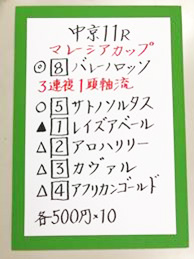 中京11R
マレーシアカップ
◎ 8 バレーロッソ
3連複1頭軸流
○ 5 サトノソルタス
▲ 1 レイズアベール
△ 2 アロハリリー
△ 3 カヴァル
△ 4 アフリカンゴールド
各500円×10